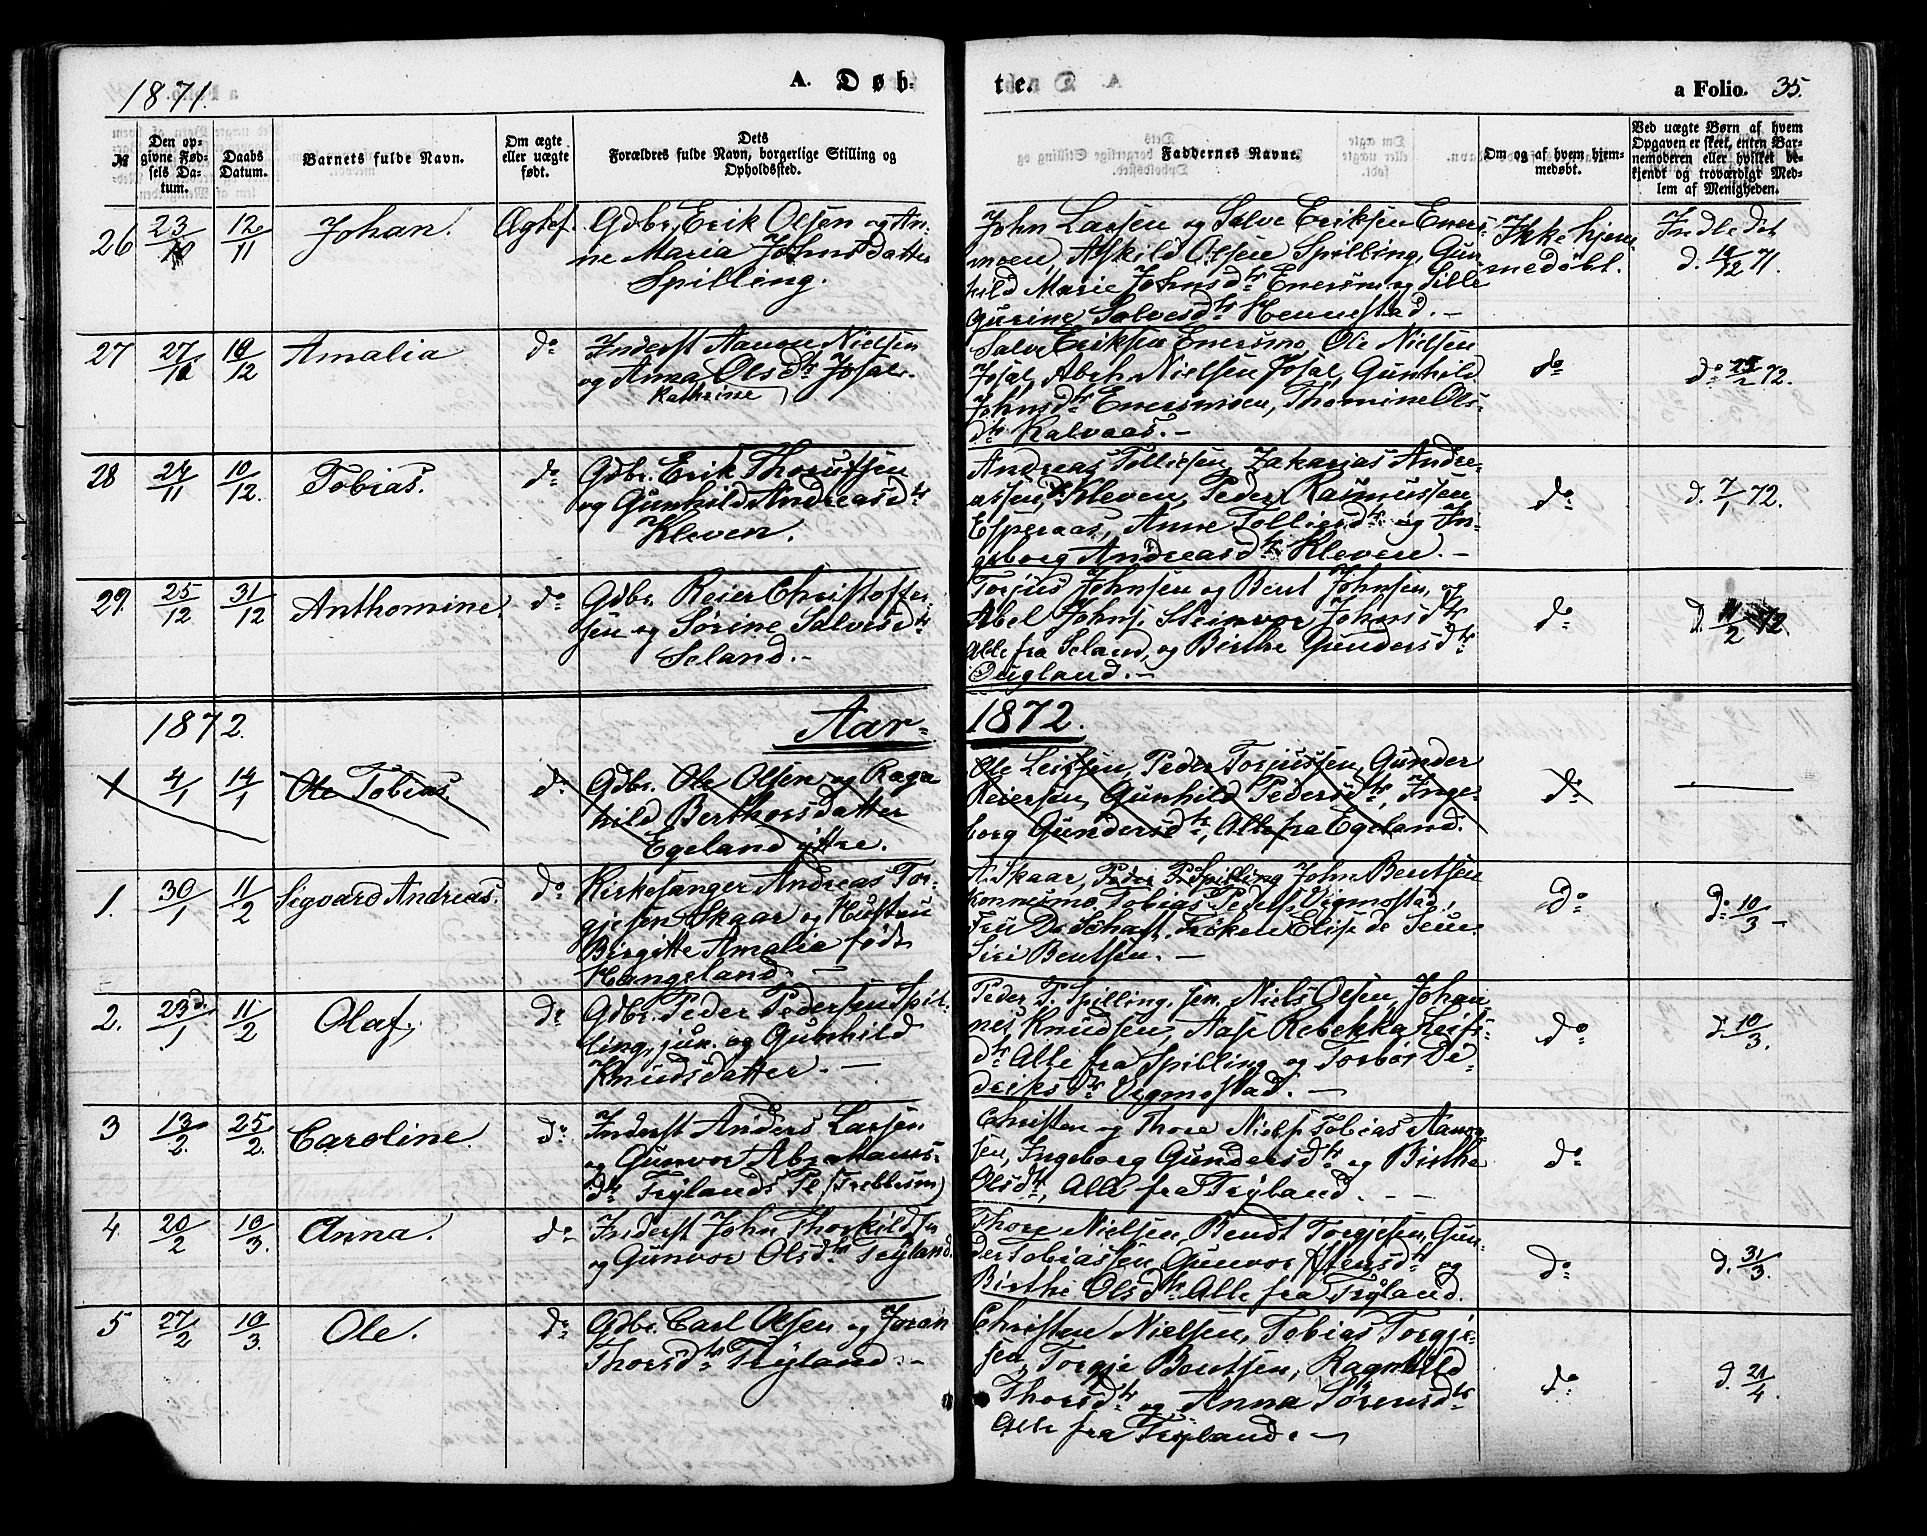 1871.
A. Døb-
te.
a Folio. 35.
№
Den op-
givne Fød-
sels Da-
tum.
Daabs
Datum.
Barnets fulde Navn.
Om ægte
eller uægte
født.
Dets
Forældres fulde Navn, borgerlige Stilling og
Opholdssted.
Faddernes Navne.
Om og af hvem hjem-
medøbt.
Ved uægte Børn af hvem
Opgaven er skeet, enten Bar-
nemoderen eller hvilket be-
kjendt og troværdigt Med-
lem af Menigheden.
26 23/10 12/11 Johan. Ægtef.
Gdbr. Erik Olsen og An-
ne Maria Johnsdatter
Spilling.
John Larsen og Salve Eriksen Eners-
moen, Askild Olsen Spilling, Gun-
hild Marie Johnsdtr Enersm. og Sille
Gurine Salvesdtr Hennestad. -
Ikke hjem-
medøbt.
Indledet
d. /12 71.
27 27/ 10/12 Amalia do
Inderst Aanon Nielsen
og Anna Olsdtr Josal.
Kathrine
Salve Eriksen Enersmo, Ole Nielsen
Josal, Abel Nielsen Josal, Gunhild
Johnsdtr Enersmoen, Thomine Ols-
dtr Kalvaas. -
do
do /2 72.
28 24/11 10/12. Tobias. do
Gdbr. Erik Thorufsen
og Gunhild Andreasdtr
Kleven.
Andreas Tolliefsen, Zakarias Andre-
assen, Kleven, Peder Rasmussen
Esperaas, Anne Tolliefsdtr og In-
geborg Andreasdtr Kleven. -
do
d. 7/1 72.
29. 25/12 31/12 Anthomine. do
Gdbr. Reier Christoffer-
sen og Sørine Salvesdtr
Seland. -
Torjus Johnsen og Bent Johnsen, og
Abel Johns. Steinvor Johnsdtr
Alle fra Seland, og Birthe Gundersdtr
Øugland. -
do
d. 11/2 72.
1872. Aar-
1872.
1 4/1 14/1 Ole Tobias. do
Gdbr. Ole Olsen og Ragn-
hild Berthorsdatter
Egeland ytre.
Ole Leifsen, Peder Torjussen, Gunder
Reiersen, Gunhild Pedersdtr, Inge-
borg Gundersdtr, Alle fra Egeland.
do
—
1. 30/1 11/2 Sigvard Andreas. do
Kirkesanger Andreas Tor-
gjesen Skaar og Hustru
Birgitte Amalia født
Hangeland. -
A. Skaar, Peder P. Spilling John Bentsen
Konnismo, Tobias Peders. Vigmostad,
Fru De Schaft, Frøken Elise de Seue
Siri Bentsen. -
Do
Do 10/3 -
2. 23d./1 11/2 Olaf. do
Gdbr. Peder Pedersen Spil-
ling, jun. og Gunhild
Knudsdatter. -
Peder T. Spilling, sen. Niels Olsen, Johan-
nes Knudsen, Aase Rebekka Leifs-
dtr Alle fra Spilling og Torbør De-
driksdtr Vigmostad. -
do
d. 10/3.
3 13/2. 25/2. Caroline. do
Inderst Anders Larsen
og Gunvor Abrahams-
dtr Trylands Pl. (Trebbesm)
Christen og Thore Niels. Tobias Aanon-
sen, Ingeborg Gundersdtr og Birthe
Olsdtr, Alle fra Tryland. -
do
4. 20/2 10/3. Anna. do
Inderst John Thorkildsen
og Gunvor Olsdtr Tryland.
Thore Nielsen, Bendt Torgjesen, Gun-
der Tobiassen, Gunvor Atensdtr og
Birthe Olsdtr Alle fra Tryland.
do
d. 31/3.
5 27/2 10/3. Ole. do
Gdbr. Carl Olsen og Joran
Thorsdtr Tryland. -
Christen Nielsen, Tobias Torgje-
sen, Torgje Bentsen, Ragnhild
Thorsdtr og Anna Sørensdtr
Alle fra Tryland. -
do
d. 21/4